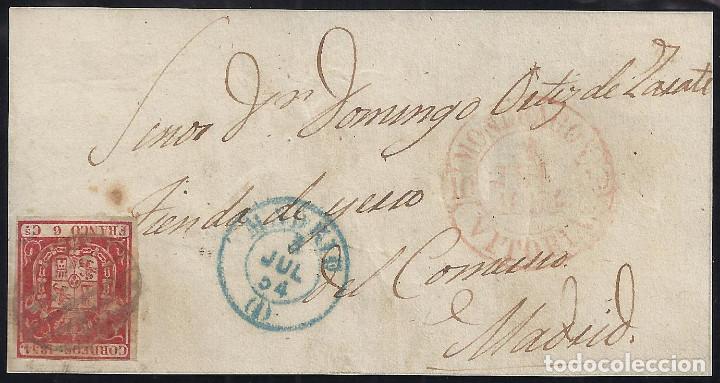 Señor Dn Domingo Ortiz de Zarate
Tienda de yeso
del Comercio.
Madrid.
MADRID
3
JUL
54
(1)
VITORIA
FRANCO 6 Cs
CORREOS 1854
todocoleccion